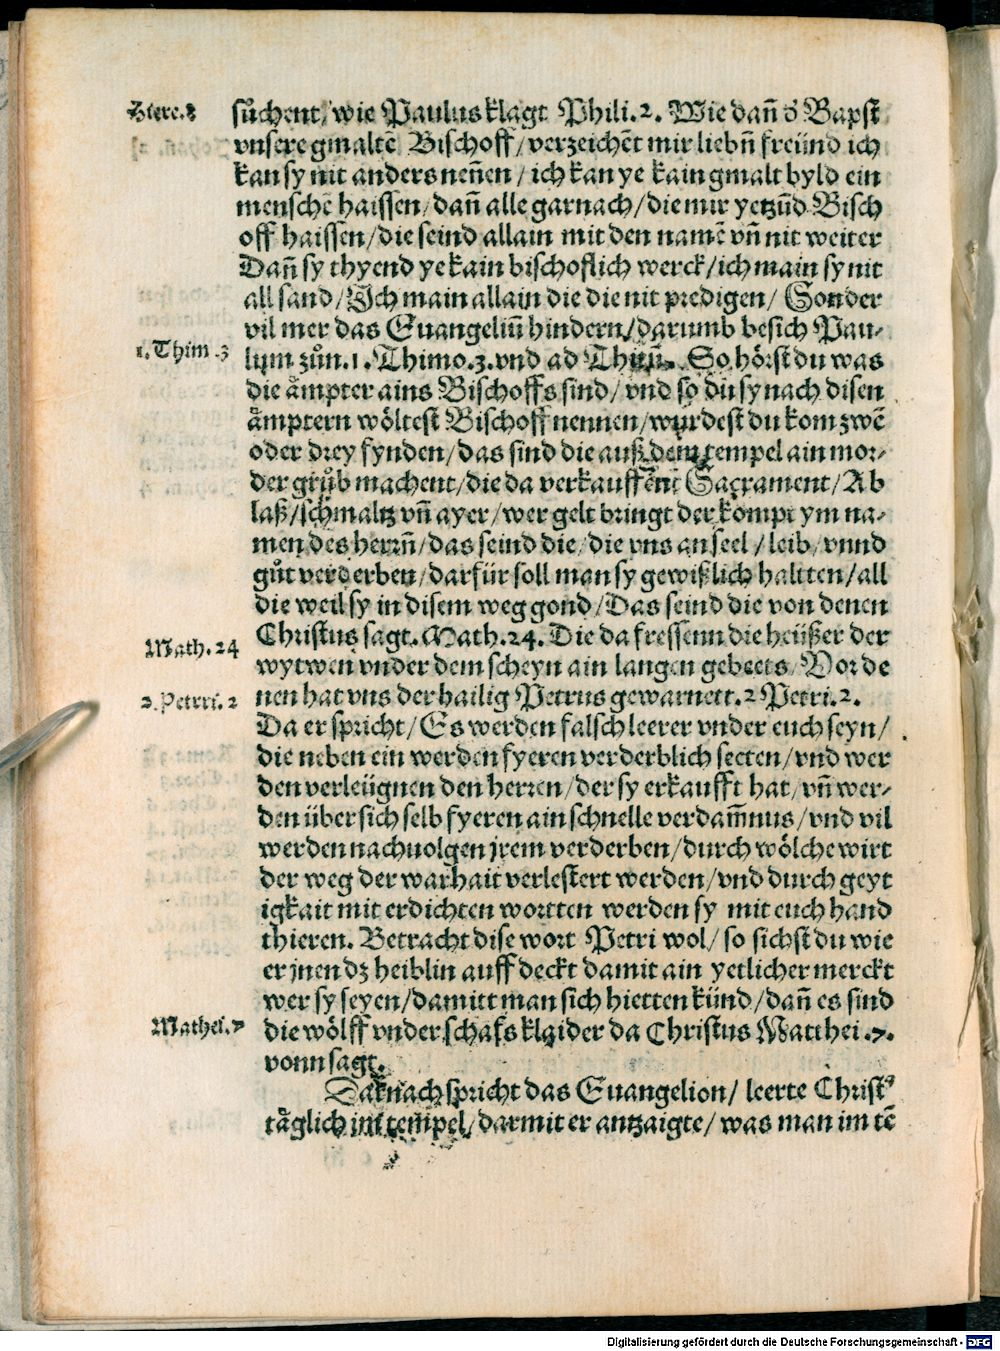 Hiere.8
sůchent/ wie Paulus klagt Phili.2. Wie dañ d̕ Bapst
vnsere gmaltē Bischoff/ verzeichēt mir liebñ freünd ich
kan sy nit anders neñen/ ich kan ye kain gmalt byld ein
menschē haissen/ dañ alle garnach/ die mir yetzūd Bisch
off haissen/ die seind allain mit den namē vñ nit weiter
Dañ sy thyend ye kain bischoflich werck/ ich main sy nit
all sand/ Jch main allain die die nit predigen/ Sonder
vil mer das Euangeliū hindern/ darumb besich Pau-
1.Thim.3
lum zům.1.Thimo.3.vnd ad So hörst du was
die åmpter ains Bischoffs sind/ vnd so du sy nach disen
åmptern wöltest Bischoff nennen/ wurdest du kom zwē
oder drey fynden/ das sind die auß dem tempel ain mor-
der grůb machent/ die da verkauffent Sacrament/ Ab
laß/ schmaltz vñ ayer/ wer gelt bringt der kompt ym na-
men des herrñ/ das seind die/ die vns an seel/ leib/ vnnd
gůt verderben/ darfür soll man sy gewißlich haltten/ all
die weil sy in disem weg gond/ Das seind die von denen
Christus sagt. Math.24. Die da fressenn die heüßer der
Math.24
wytwen vnder dem scheyn ain langen gebeets/ Vor de
2.Petrri.2
nen hat vns der hailig Petrus gewarnett.2 Petri.2.
Da er spricht/ Es werden falsch leerer vnder euch seyn/
die neben ein werden fyeren verderblich secten/ vnd wer
den verleügnen den herren/ der sy erkaufft hat/ vñ wer-
den über sich selb fyeren ain schnelle verdam̃nus/ vnd vil
werden nachuolgen jrem verderben/ durch wölche wirt
der weg der warhait verlestert werden/ vnd durch geyt
igkait mit erdichten wortten werden sy mit euch hand
thieren. Betracht dise wort Petri wol/ so sichst du wie
er jnen dz heiblin auff deckt damit ain yetlicher merckt
wer sy seyen/ damitt man sich hietten künd/ dañ es sind
Mathei.7
die wölff vnder schafs klaider da Christus Matthei.7.
vonn sagt.
Darnach spricht das Euangelion/ leerte Christ⁹
täglich im tempel/ darmit er antzaigte/ was man im tē
Digitalisierung gefördert durch die Deutsche Forschungsgemeinschaft - DFG